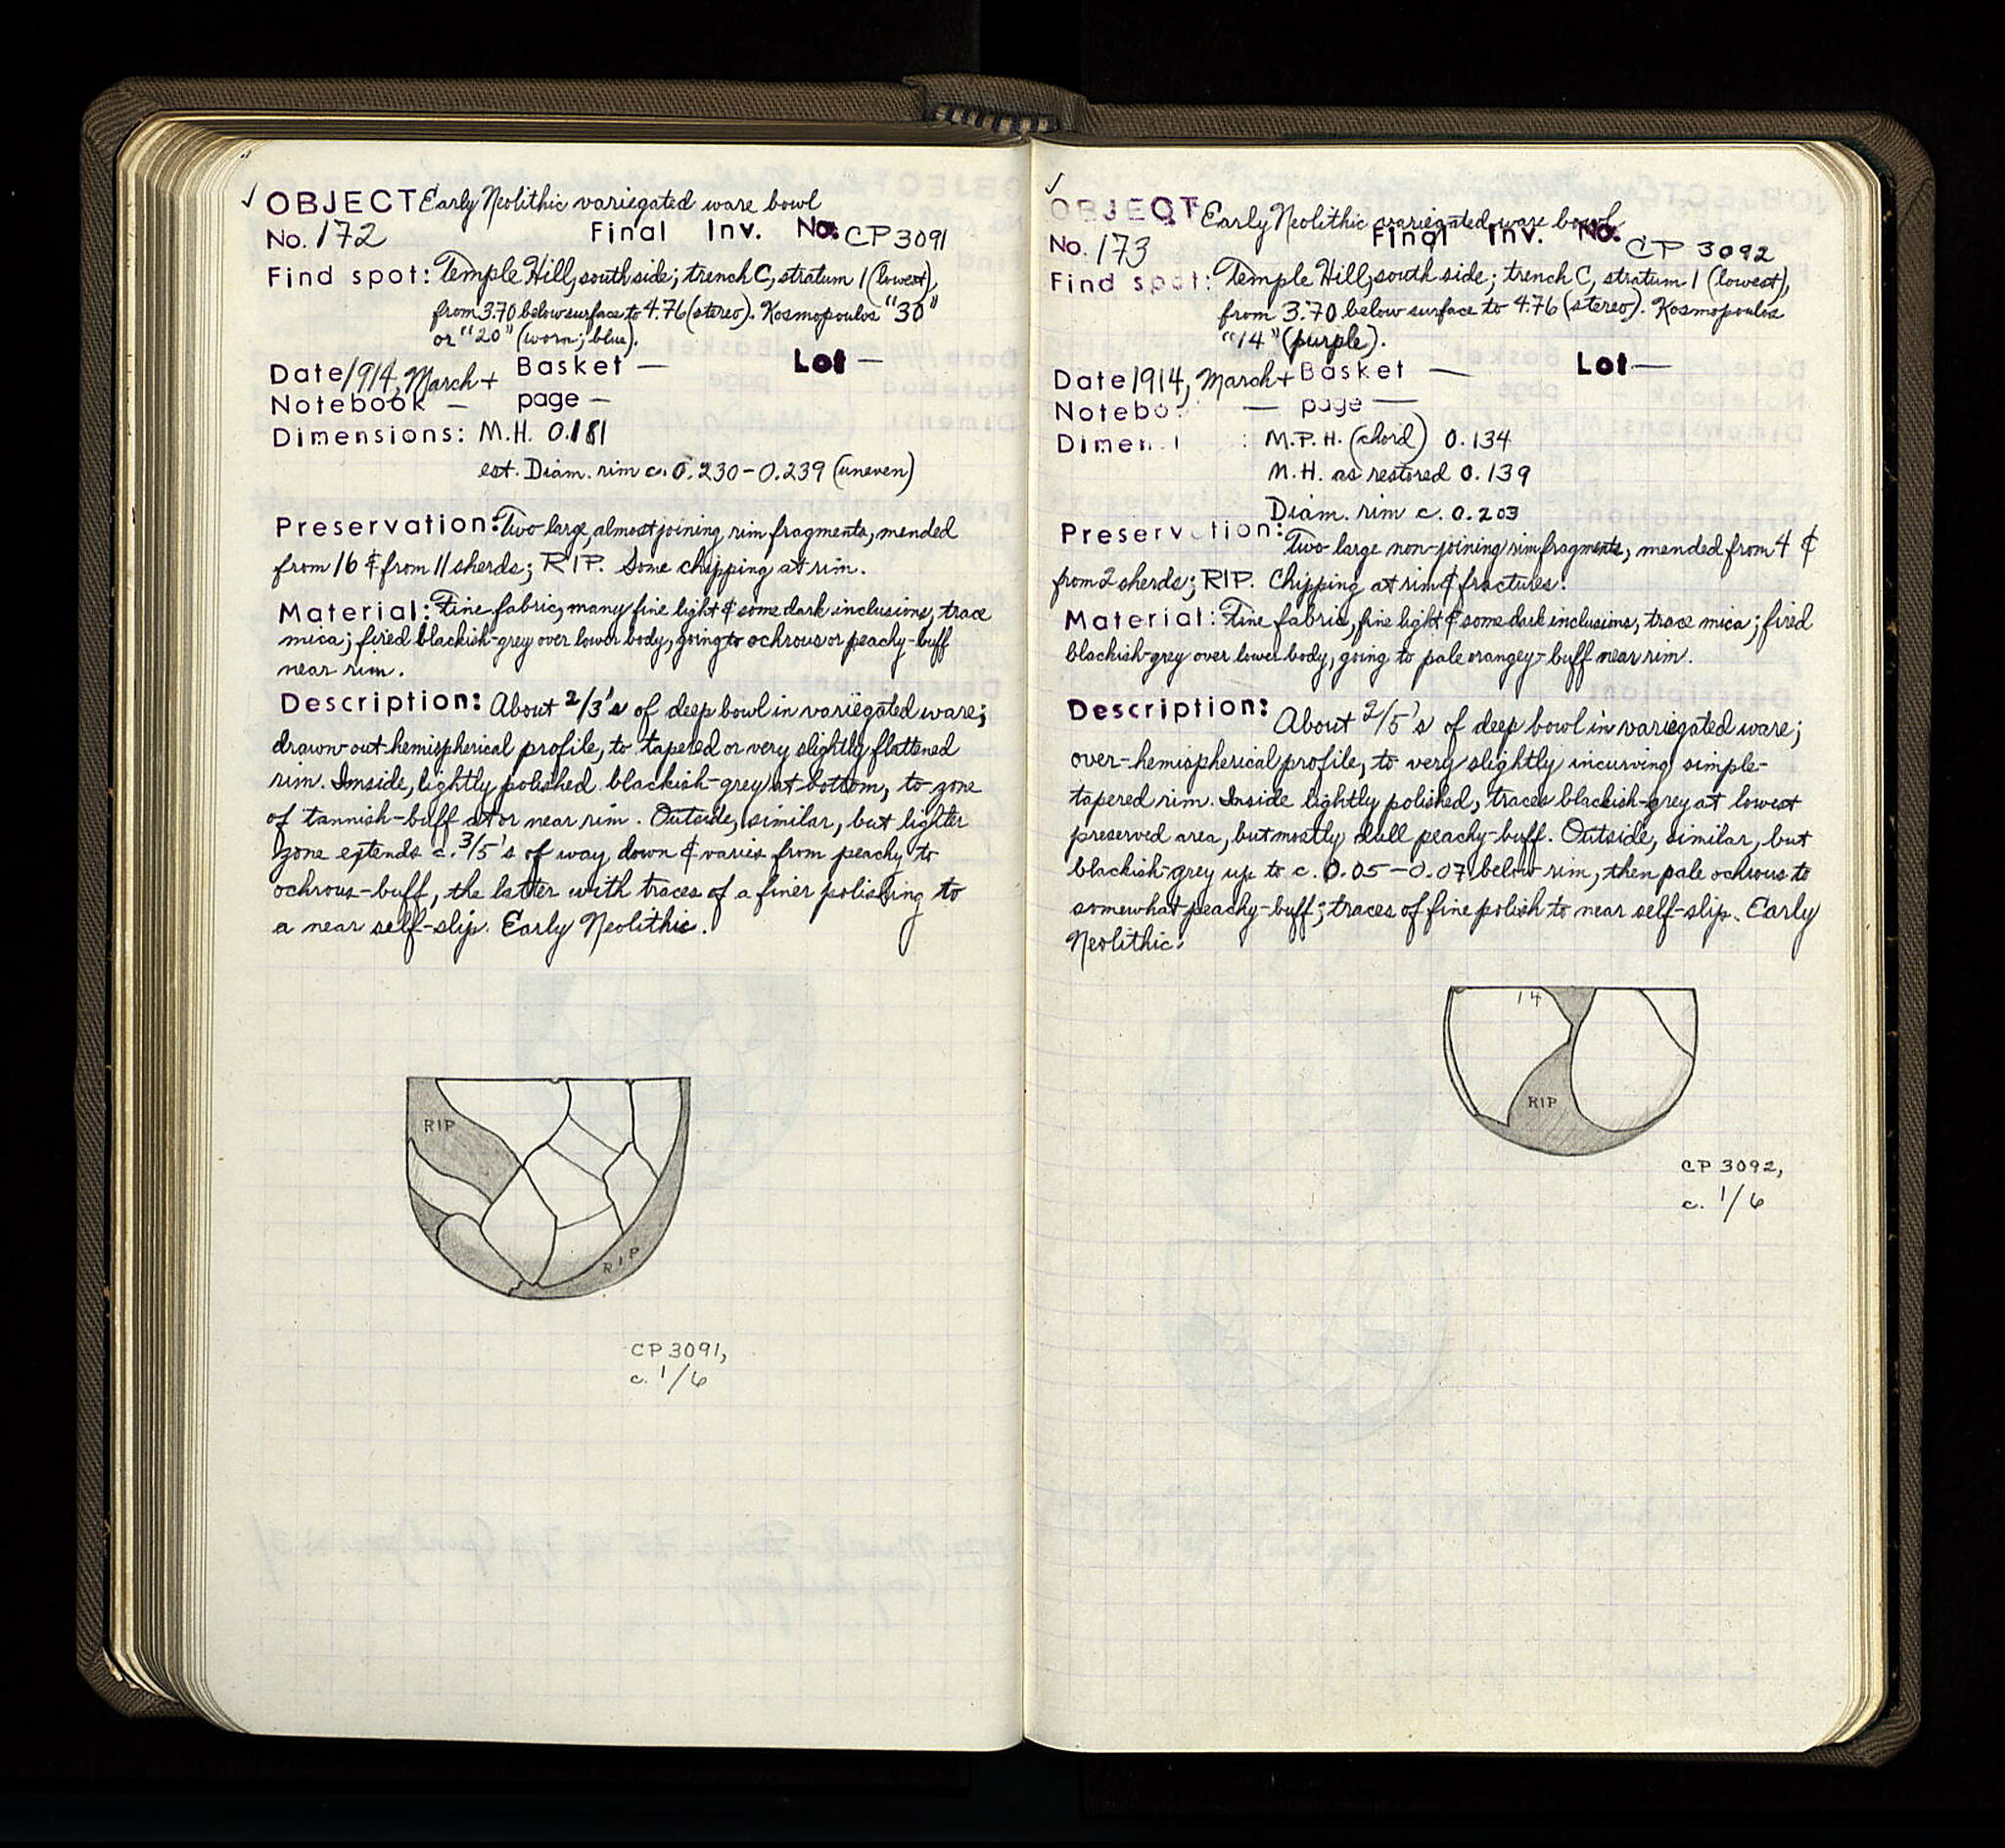 ✓ OBJECT Early Neolithic variegated ware bowl
No. 172 Final Inv. No. CP 3091
Find spot: Temple Hill, south side; trench C, stratum 1 (lowest),
from 3.70 below surface to 4.76 (stereo). Kosmopoulos "30"
or "20" (worn; blue).
Date 1914, March+ Basket — Lot —
Notebook — page —
Dimensions: M.H. 0.181
est. Diam. rim c. 0.230-0.239 (uneven)
Preservation: Two large, almost joining, rim fragments, mended
from 16 & from 11 sherds; RIP. Some chipping at rim.
Material: Fine fabric, many fine light & some dark inclusions, trace
mica; fired blackish-grey over lower body, going to ochrous or peachy-buff
near rim.
Description: About 2/3's of deep bowl in variegated ware;
drawn-out-hemispherical profile, to tapered or very slightly flattened
rim. Inside, lightly polished blackish-grey at bottom, to zone
of tannish-buff at or near rim. Outside, similar, but lighter
zone extends c. 3/5's of way down & varies from peachy to
ochrous-buff, the latter with traces of a finer polishing to
a near self-slip. Early Neolithic.
RIP
RIP
CP 3091,
c. 1/6
✓
OBJECT Early Neolithic variegated ware bowl
No. 173 Final Inv. No. CP 3092
Find spot: Temple Hill, south side; trench C, stratum 1 (lowest),
from 3.70 below surface to 4.76 (stereo). Kosmopoulos
"14" (purple).
Date 1914, March+ Basket — Lot —
Notebo — page —
Dimen : M.P.H. (chord) 0.134
M.H. as restored 0.139
Diam. rim c. 0.203
Preservation: Two large non-joining rim fragments, mended from 4 &
from 2 sherds; RIP. Chipping at rim & fractures.
Material: Fine fabric, fine light & some dark inclusions, trace mica; fired
blackish-grey over lower body, going to pale orangey-buff near rim.
Description: About 2/5's of deep bowl in variegated ware;
over-hemispherical profile, to very slightly incurving simple-
tapered rim. Inside lightly polished, traces blackish-grey at lowest
preserved area, but mostly dull peachy-buff. Outside, similar, but
blackish-grey up to c. 0.05-0.07 below rim, then pale ochrous to
somewhat peachy-buff; traces of fine polish to near self-slip. Early
Neolithic.
14
RIP
CP 3092,
c. 1/6